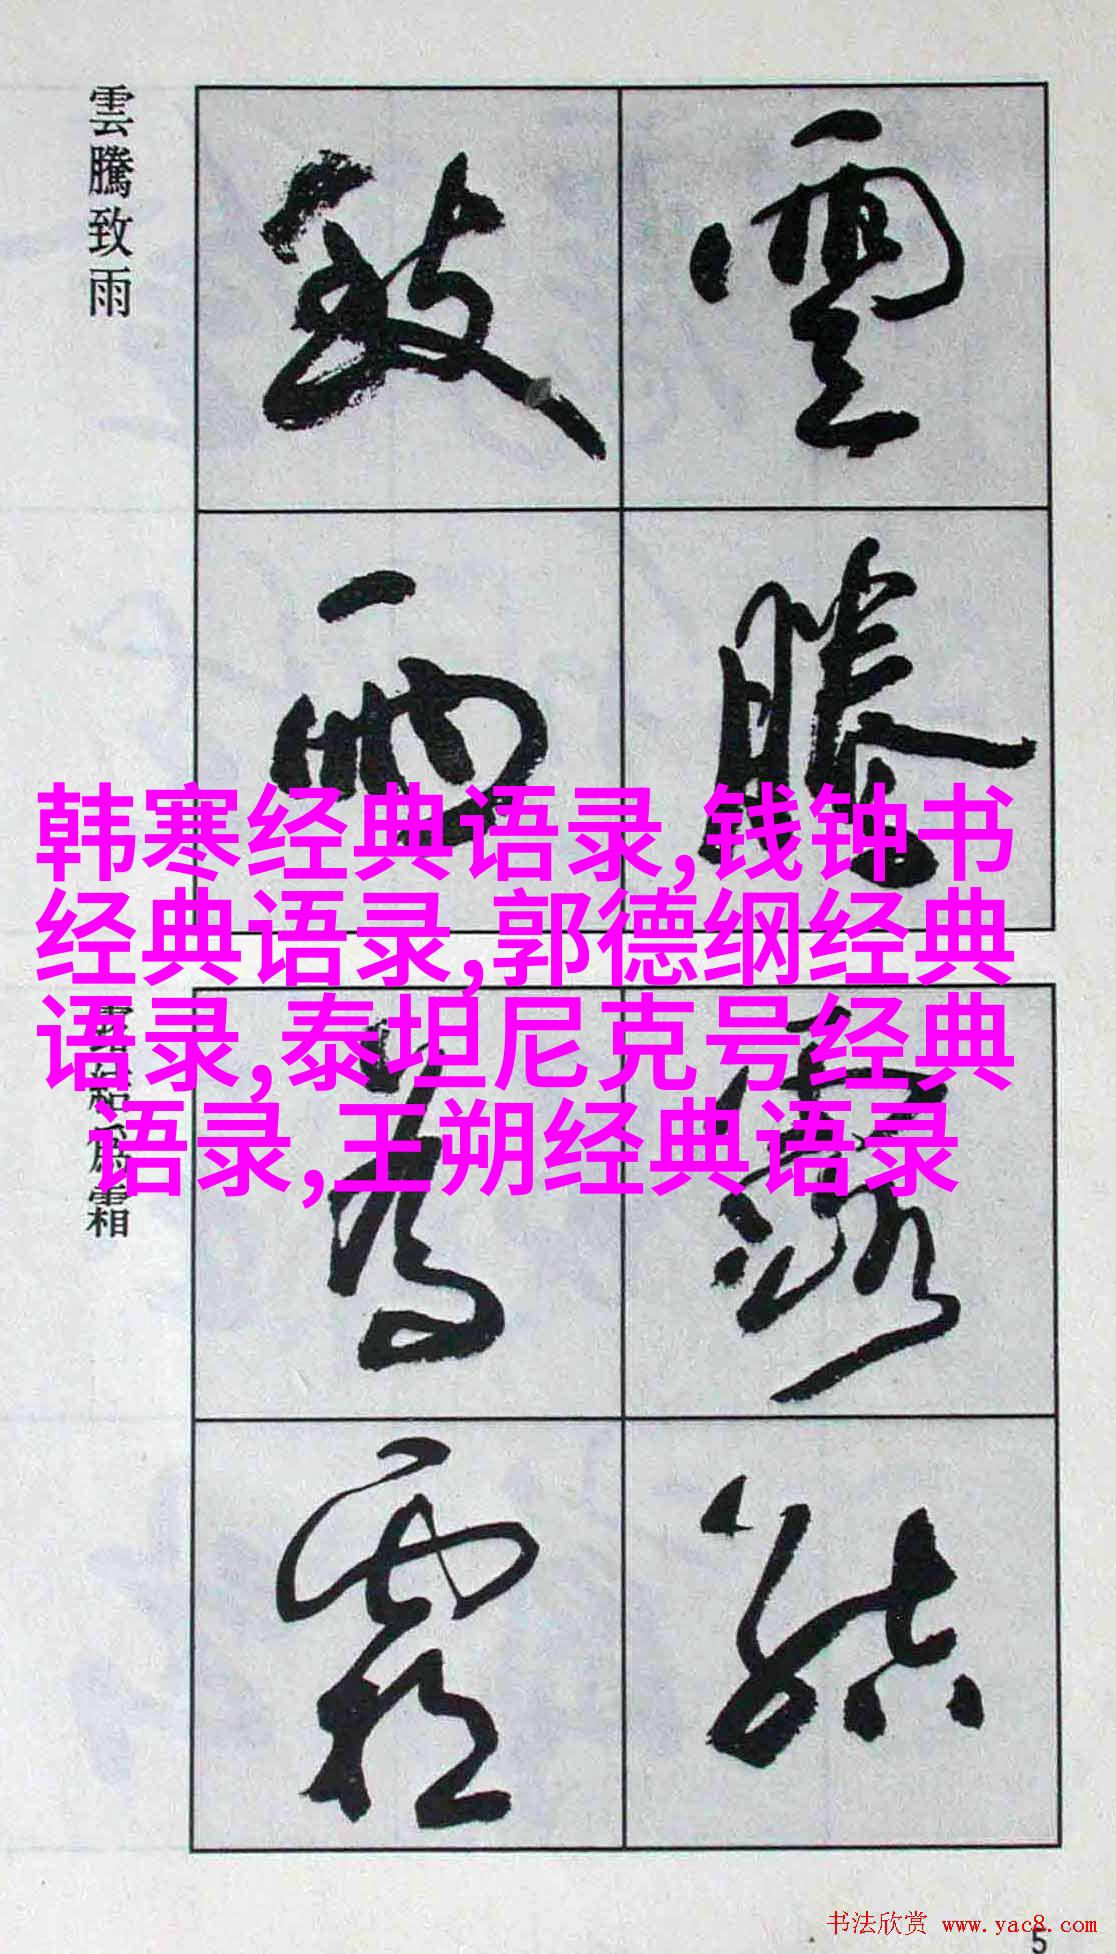 雲騰致雨
雲
騰
致
雨
韩寒经典语录,钱钟书
经典语录,郭德纲经典
语录,泰坦尼克号经典
语录,王朔经典语录
露結為霜
露
結
為
霜
书法欣赏 www.yac8.com
5